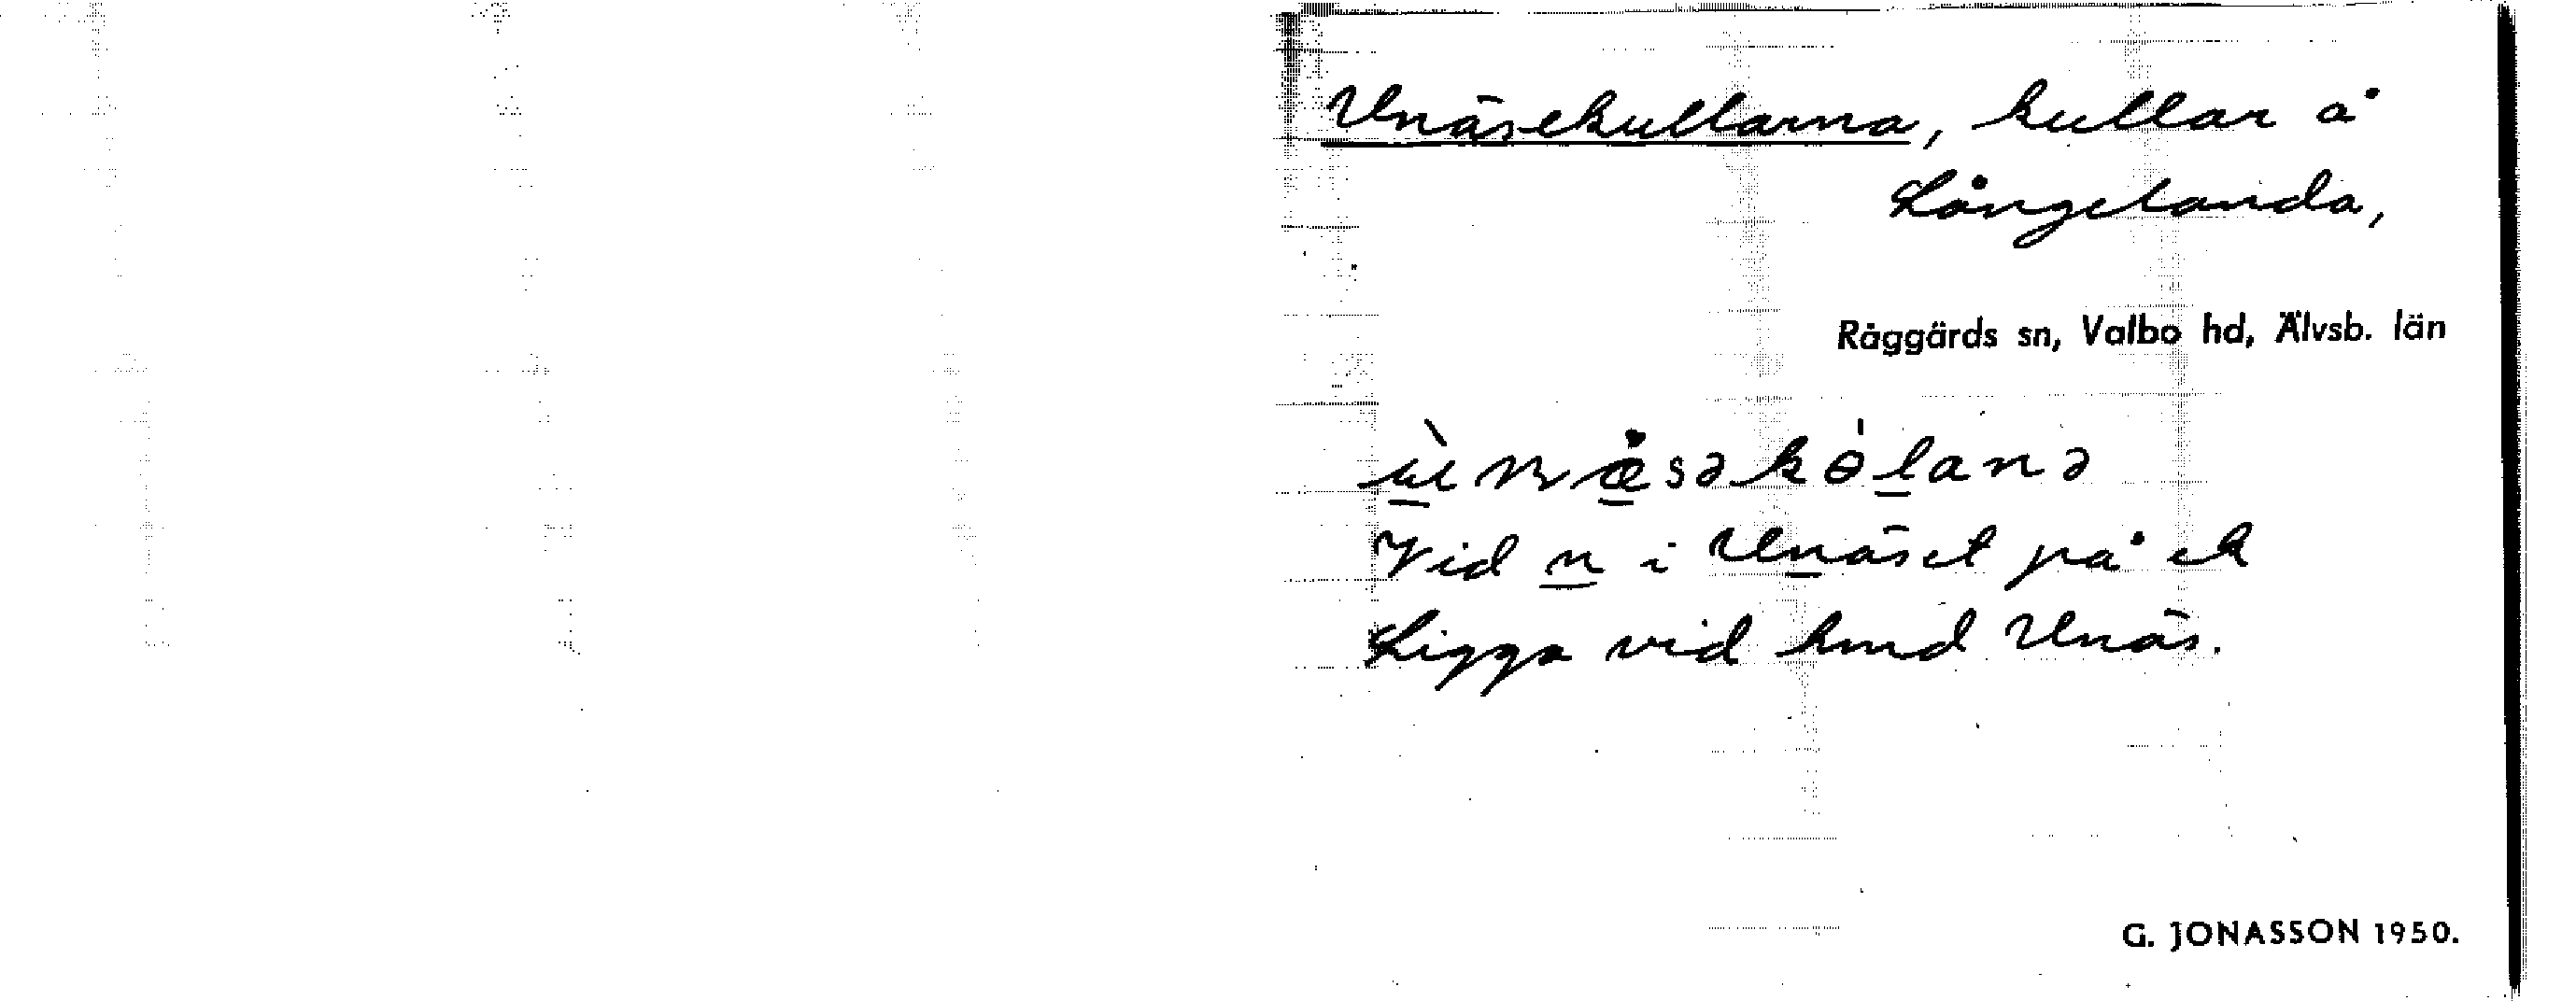 Unäsekullarna, kullar å
Långelanda,
Råggärds sn, Valbo hd, Älvsb. län
Vid n i Unäset på ek
Ligga vid hmd Unäs.
G. JONASSON 1950.